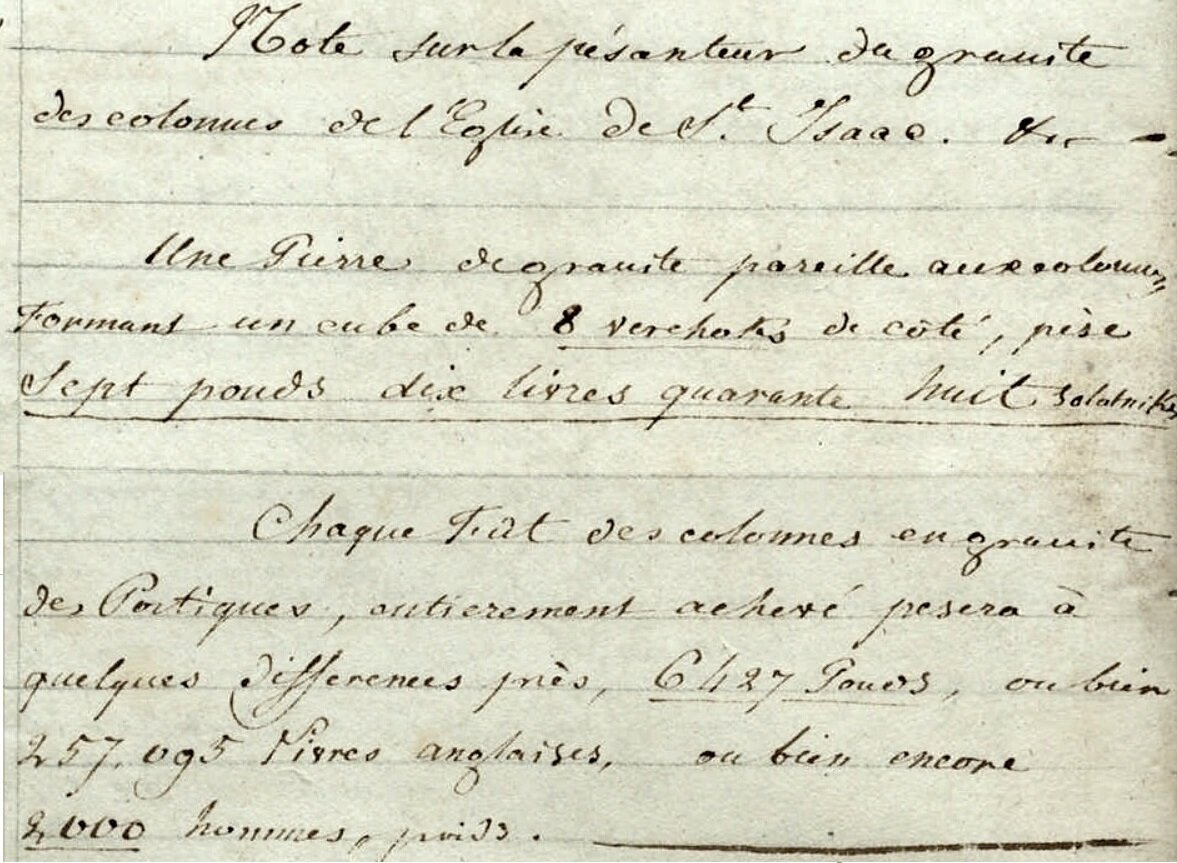 Note sur la pésanteur du granite
des colonnes de l'Eglise de St. Isaac. &c
Une Pierre de granite pareille aux colonnes
Formant un cube de 8 verchoks de côté, pèse
Sept pouds dix livres quarante huit solotniks
Chaque Fût des colonnes en granite
des Portiques, entierement achevé pesera à
quelques differences près, 6427 Pouds, ou bien
257.095 Livres anglaises, ou bien encore
2,000 hommes, poids.